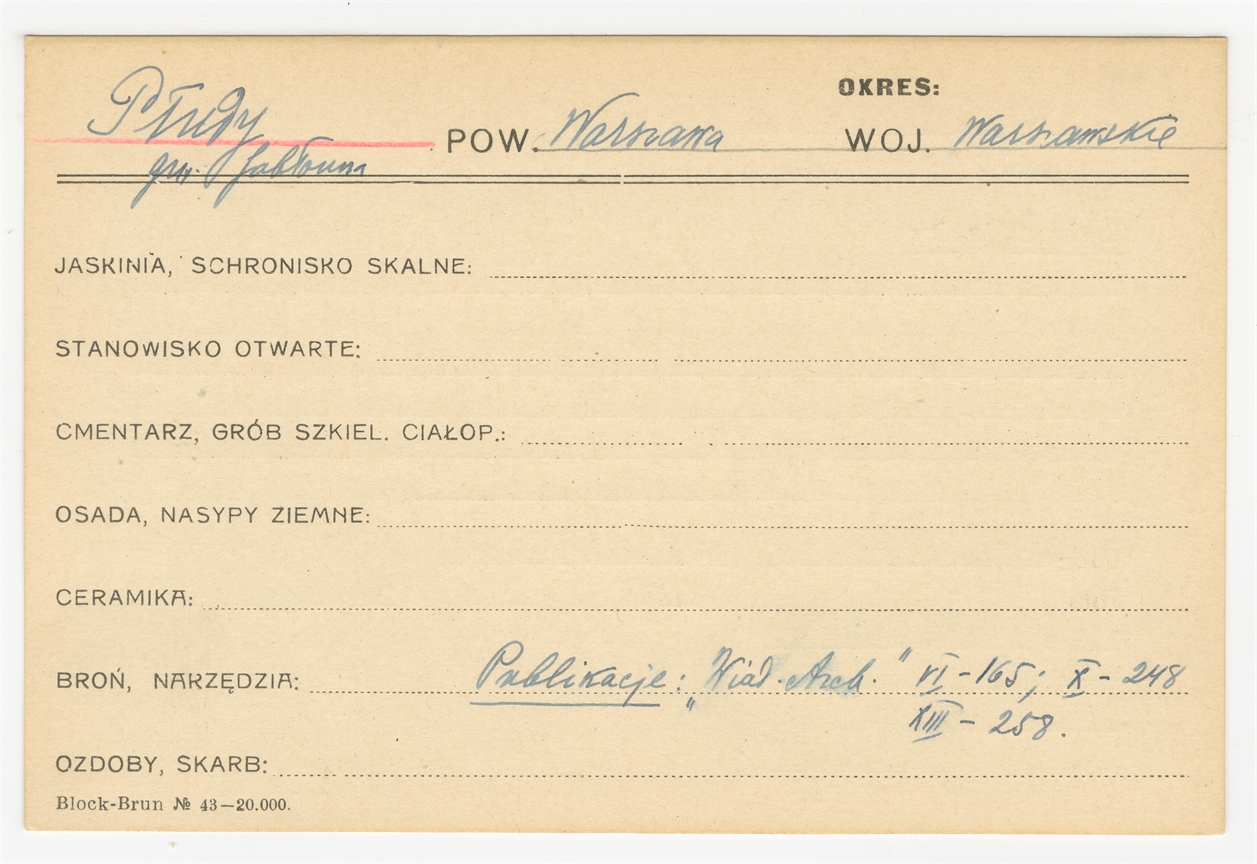 OKRES:
Płudy POW. Warszawa WOJ. Warszawskie
gm. Jabłonna
JASKINIA, SCHRONISKO SKALNE:
STANOWISKO OTWARTE:
CMENTARZ, GRÓB SZKIEL. CIAŁOP.:
OSADA, NASYPY ZIEMNE:
CERAMIKA:
BROŃ, NARZĘDZIA: Publikacje: „Wiad. Arch." VI - 165; X - 248
XIII - 258.
OZDOBY, SKARB:
Block-Brun № 43—20.000.